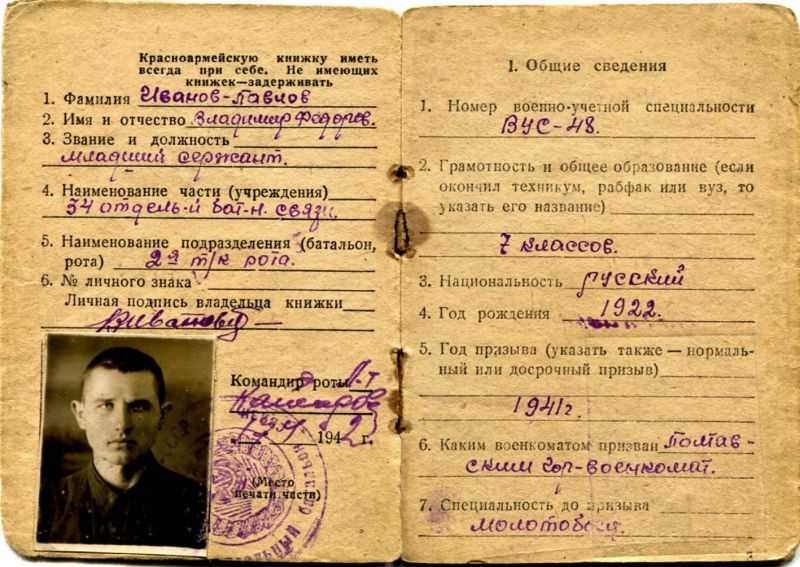 Красноармейскую книжку иметь
всегда при себе. Не имеющих
книжек—задерживать
1. Фамилия Иванов-Павлов
2. Имя и отчество Владимир Федоров.
3. Звание и должность
младший сержант.
4. Наименование части (учреждения)
54 отдель-й бат-н. связи.
5. Наименование подразделения (батальон,
рота) 2я т/к рота.
6. № личного знака
Личная подпись владельца книжки
Командир роты Л-т
194 2 г.
(Место
печати части)
1. Общие сведения
1. Номер военно-учетной специальности
ВУС-48.
2. Грамотность и общее образование (если
окончил техникум, рабфак или вуз, то
указать его название)
7 классов.
3. Национальность русский
4. Год рождения 1922.
5. Год призыва (указать также — нормаль-
ный или досрочный призыв)
1941г.
6. Каким военкоматом призван Полтав-
ским гор-военкомат.
7. Специальность до призыва
молотобоец.
3